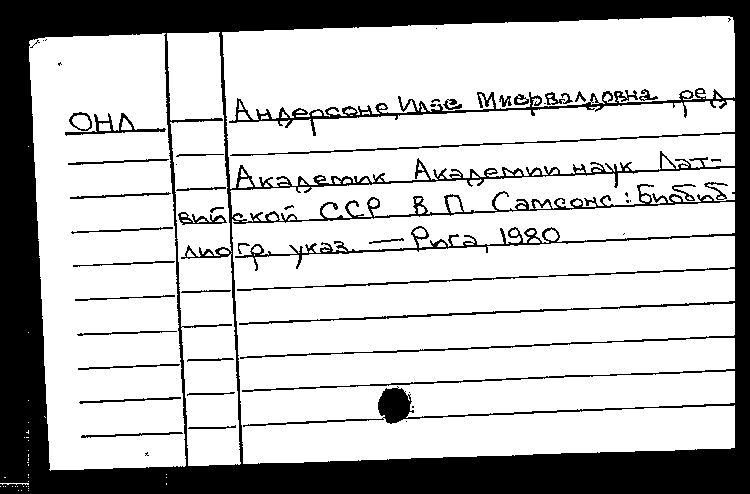 ОНЛ
Андерсоне, Илзе Миервалдовна, ред
Академик Академии наук Лат-
вийской ССР В. П. Самсонс : Биобиб-
лиогр. указ. — Рига, 1980